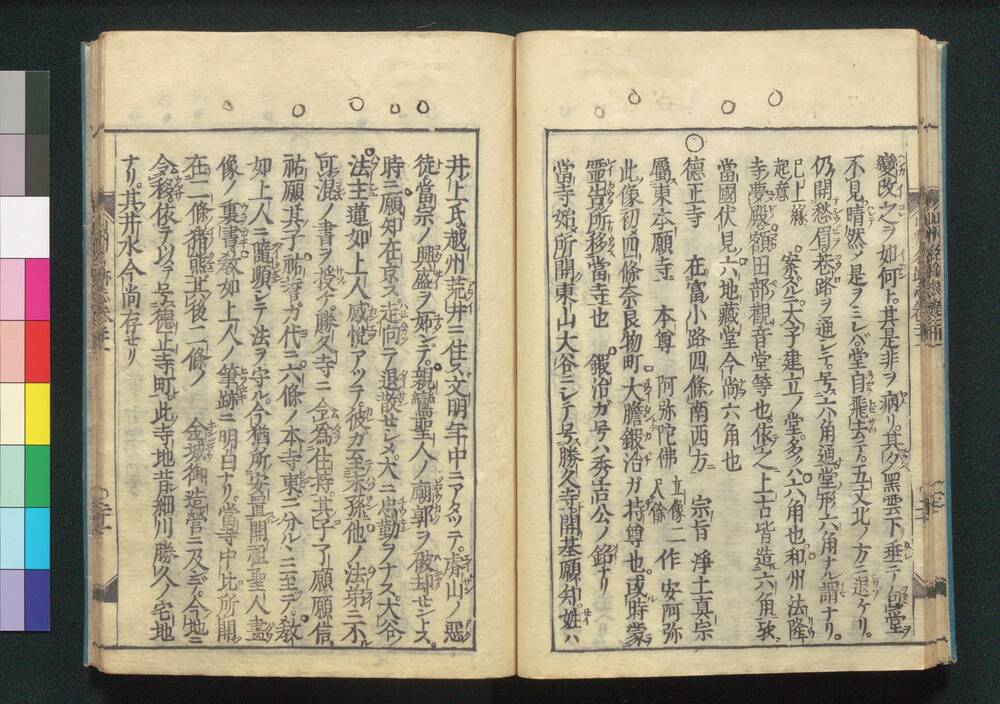 變改之ヲ如何ト其是非ヲ病リ其夕黒雲下リ垂テ包堂ヲ
不見晴然ノ是ヲミレバ堂自飛去テ五丈北ノ方ニ退ケリ
仍開愁眉巷路ヲ通シテ号六角通堂形六角ナル謂ナリ
已上縁起意 案ズルニ太子建立ノ堂多ハ六角也和州法隆
寺夢殿額田部觀音堂等也依之上古皆造六角歟
當國伏見六地藏堂今尚六角也
德正寺 在富小路四條南西方 宗旨 淨土真宗
屬東本願寺 本尊 阿弥陀佛 立像二尺餘 作 安阿弥
此像初四條奈良物町大膽鍛冶ガ持尊也或時蒙
靈告所移當寺也 鍛冶ガ号ハ秀吉公ノ銘ナリ
當寺始所開東山大谷ニシテ号勝久寺開基願知姓ハ
井上氏越州荒井ニ住ス文明年中ニアタツテ脊山ノ惡
徒當宗ノ興盛ヲ妬ンデ親鸞聖人ノ廟郭ヲ破却セントス
時ニ願知在京ス走向テ退散セシメ大ニ忠勤ヲナス大谷ノ
法主蓮如上人感悦アツテ彼ガ至末孫他ノ法弟ニ不
可混ノ書ヲ授ケ勝久寺ニ令爲住持其子了願願信
祐願其子祐誓ガ代ニ六條ノ本寺東ニ分ルヽニ至テ教
如上人ニ隨順シテ法ヲ守ル今猶所安置開祖聖人畫
像ノ裏書教如上人ノ筆跡ニ明白ナリ當寺中比所開
在二條猪熊其後二條ノ 金城御造營ニ及デ今地ニ
令移依テ以テ号德正寺町此寺地昔細川勝久ノ宅地
ナリ其井水今尚存セリ